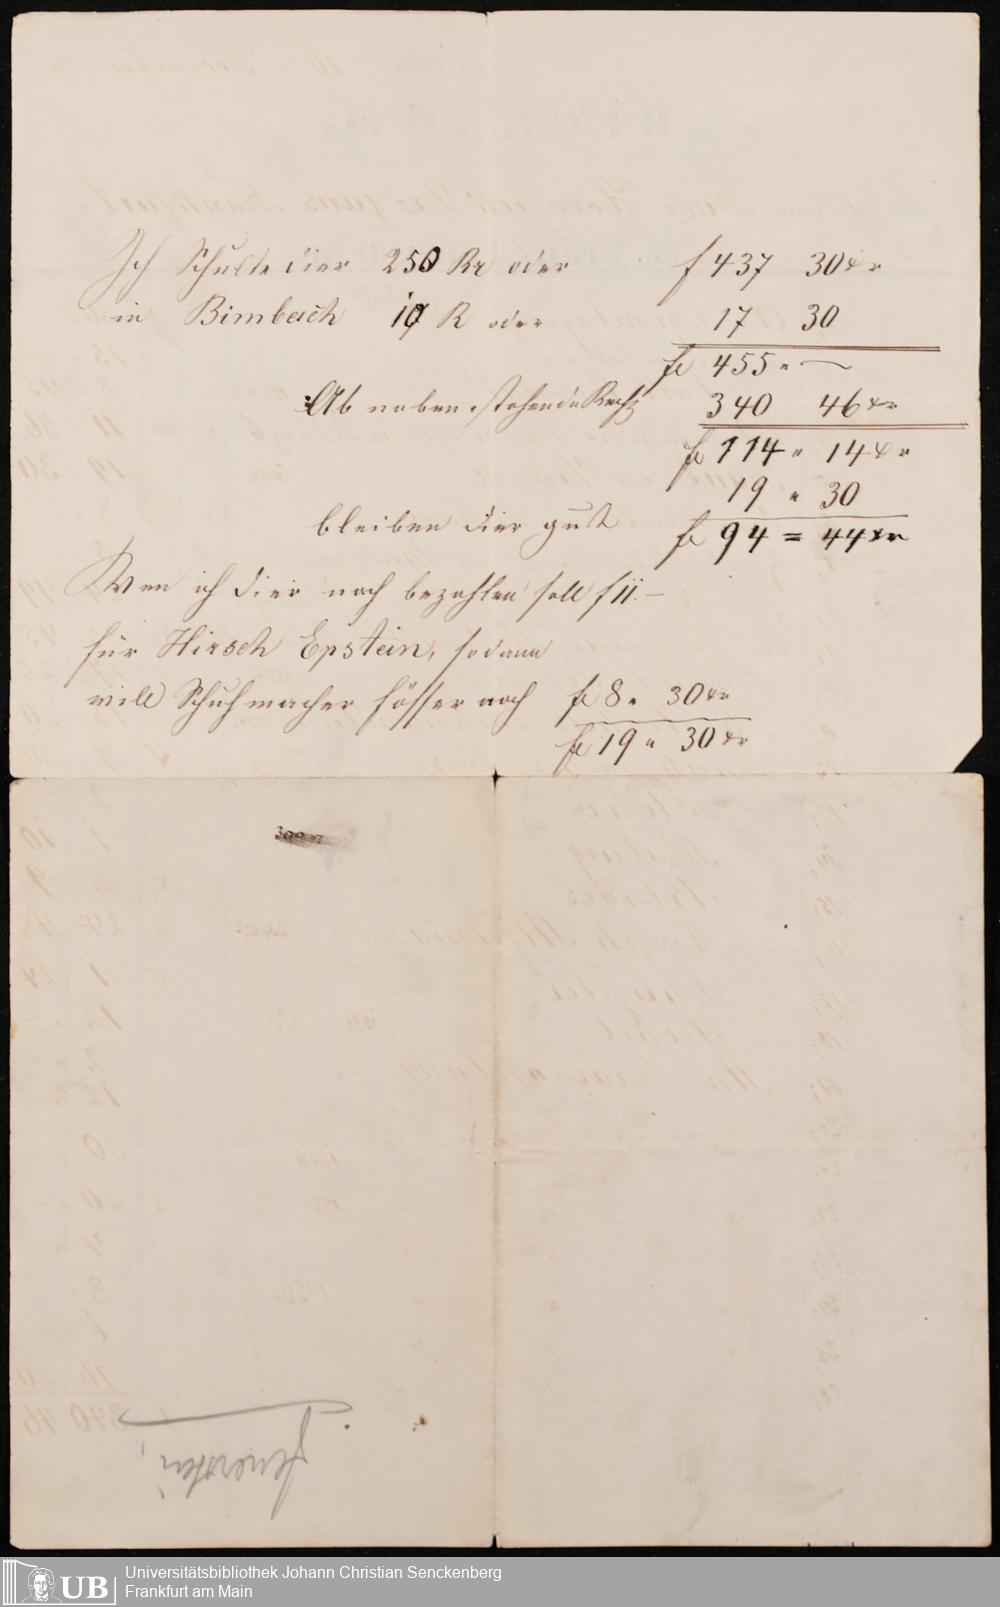 Ich Schulde dier 250 Rr oder f 437 30 xr
in Bimbach 10 R oder 17 30
f 455 " —
Ab neben stehende Rechg 340 46 xr
f 114 " 14 xr
19 " 30
bleiben dier gut f 94 = 44 xr
Wen ich dier noch bezahlen soll f 11.—
für Hirsch Epstein, sodann
will Schuhmacher Hösser noch f 8 " 30 xr
f 19 " 30 xr
Universitätsbibliothek Johann Christian Senckenberg
Frankfurt am Main
UB